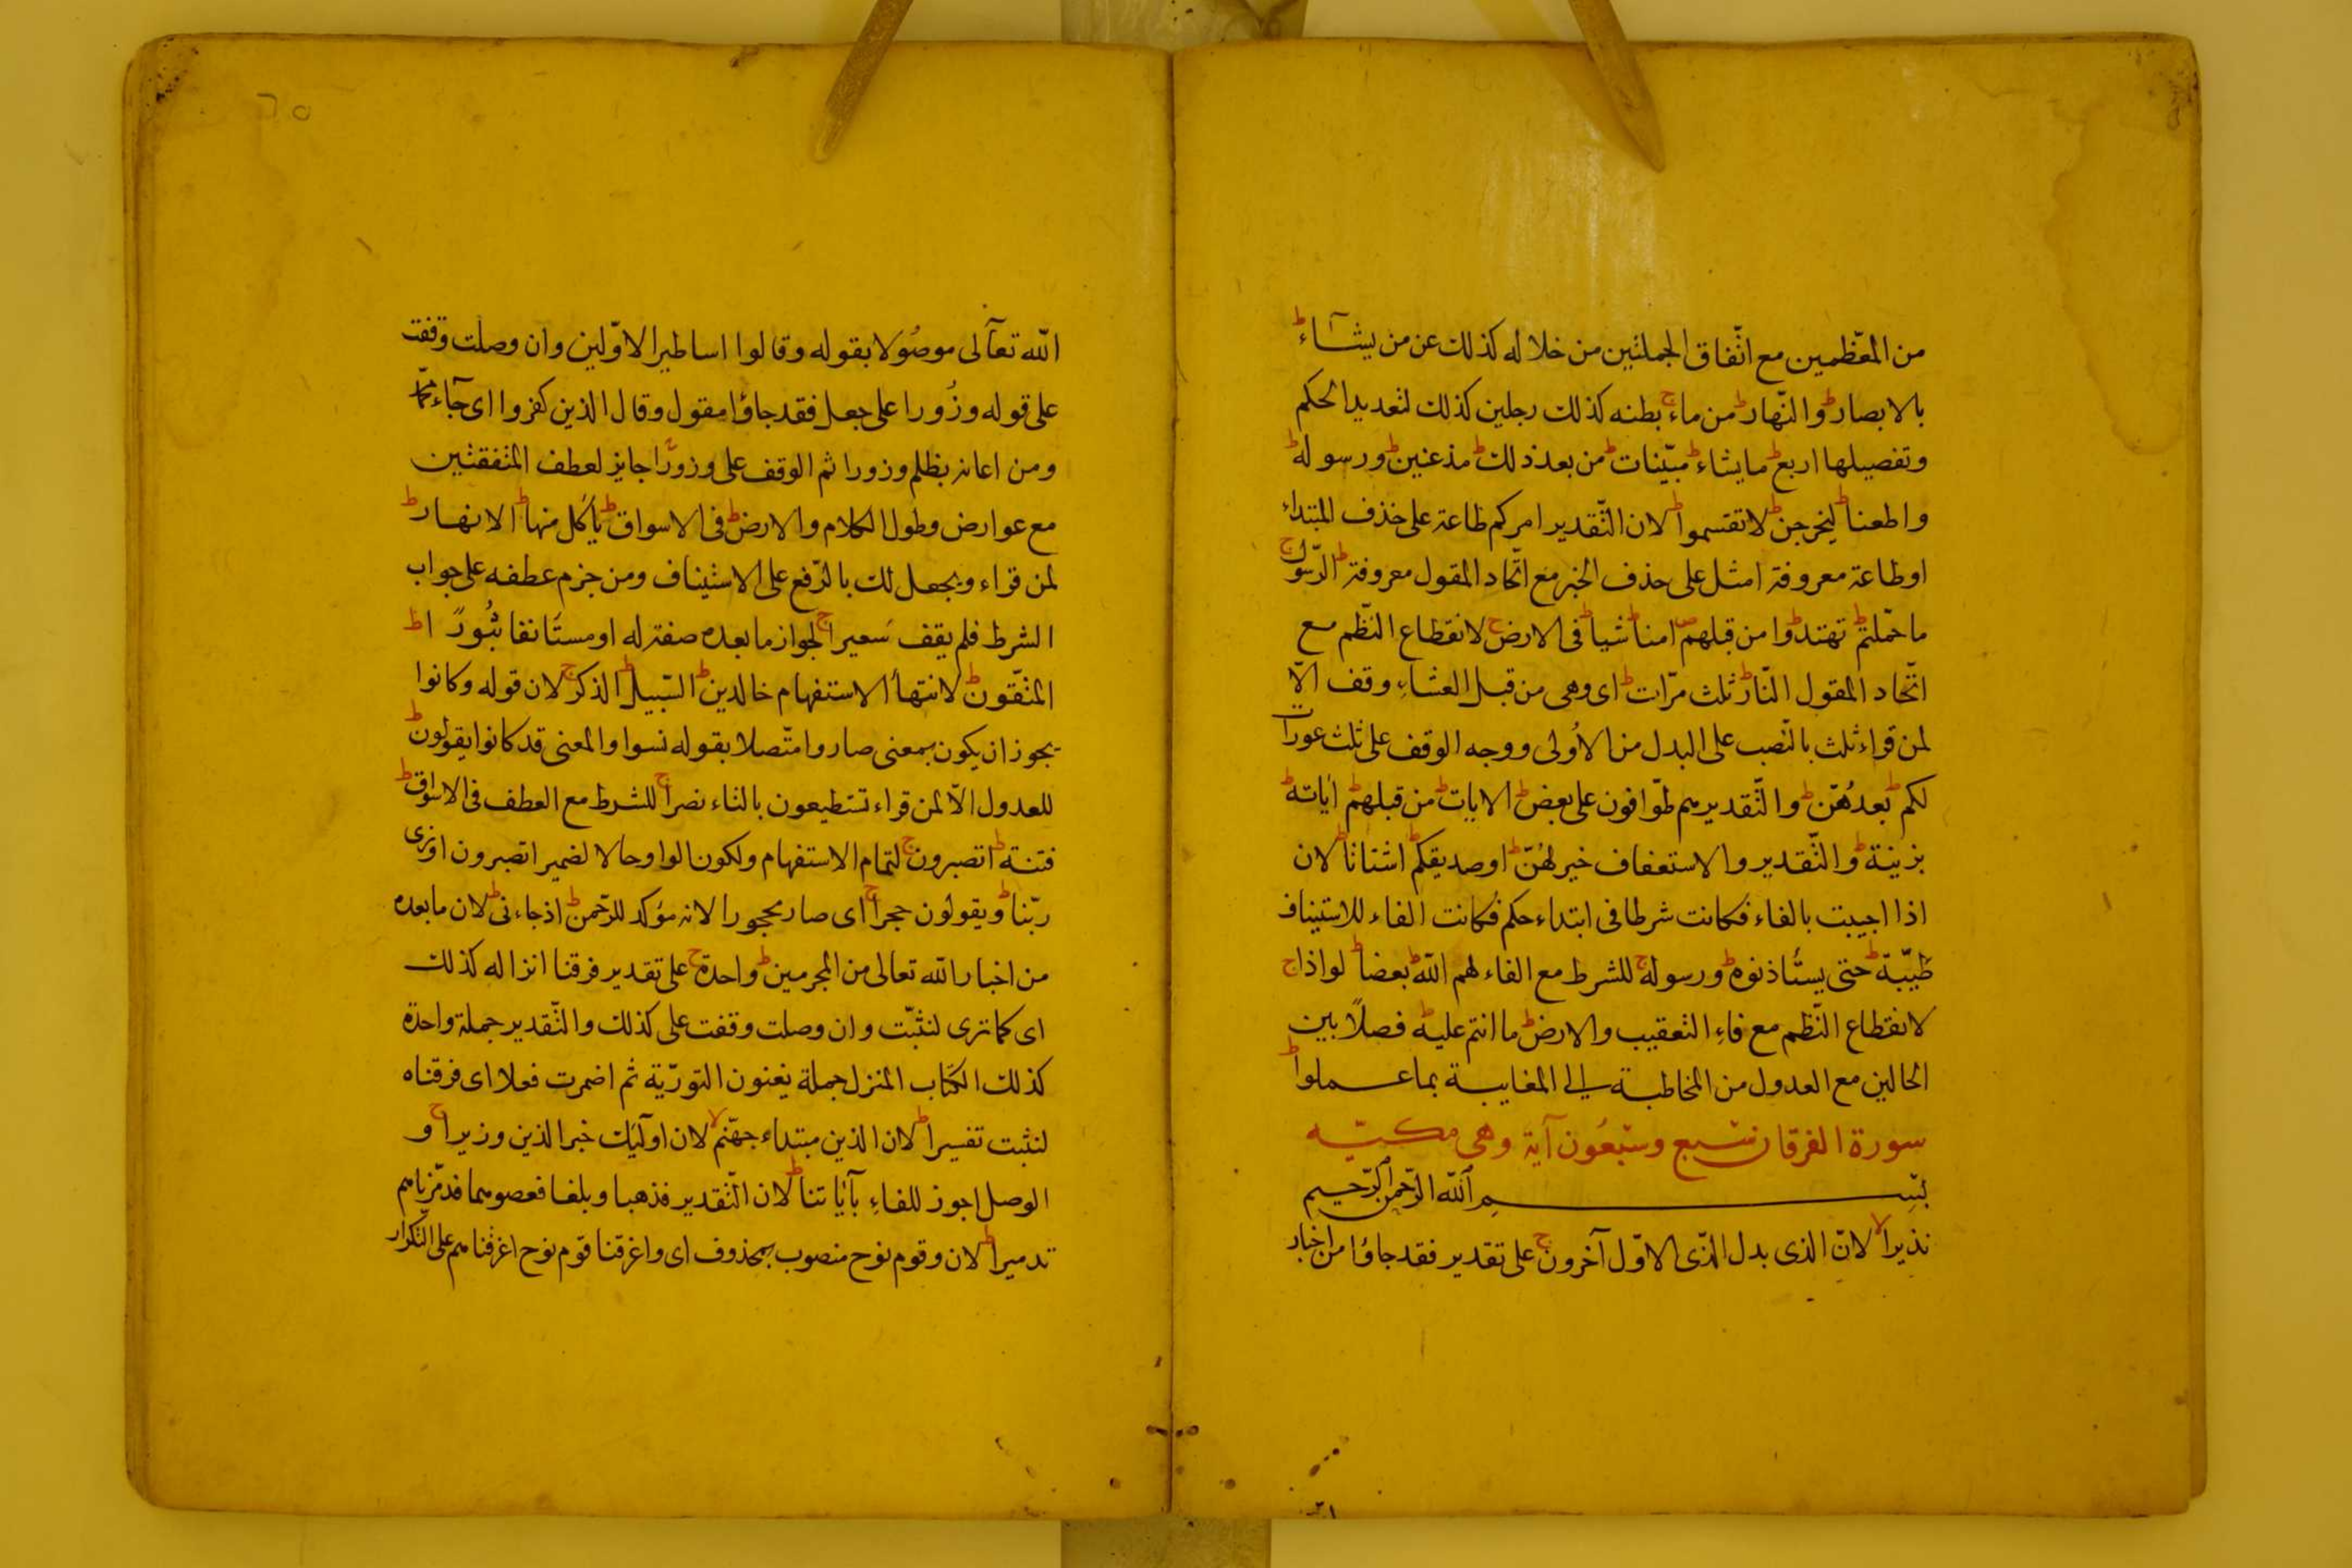 من المعظّمين مع اتّفاق الجملتين من خلاله كذلك عن من يشآء ط
بالابصار ط والنّهار ط من ماء ج بطنه كذلك رجلين كذلك لتعديد الحكم
وتفصيلها اربع ط مايشاء ط مبيّنات ط من بعد ذلك ط مذعنين ط ورسوله ط
واطعنا ط ليخرجن ط لاتقسموا ط لان التّقدير امركم طاعة على حذف المبتداء
اوطاعة معروفة امثل على حذف الخبر مع اتّحاد المقول معروفة ط الرّسول ج
ماحمّلتم ط تهتدوا ط من قبلهم ص امنا ط شيا ط فى الارض ج لانقطاع النّظم مع
اتّحاد المقول النّار ط ثلث مرّات ط اى وهى من قبل العشاءِ وقف الّا
لمن قراء ثلث بالنّصب على البدل من الاُولى ووجه الوقف على ثلث عورات
لكم ط بعدهُنّ ط والتّقدير هم طوّافون على بعض ط الايات ط من قبلهم ط اياته ط
بزينة ط والتّقدير والاستعفاف خير لهُنّ ط اوصديقكم ط اشتاتا ط لان
اذا اجيبت بالفاء فكانت شرطا فى ابتداء حكم فكانت الفاء للاستيناف
طيّبة ط حتى يستأذنوه ط ورسوله ج للشرط مع الفاء لهم الله ط بعضا ط لواذا ج
لانقطاع النّظم مع فاءِ التعقيب والارض ط ماانتم عليه ط فصلاً بين
الحالين مع العدول من المخاطبة الى المغايبة بماعملوا ط
سورة الفرقان سبع وسبْعُون آية وهى مكيّه
بسم الله الرّحمن الرّحيم
نذيرا لا لانّ الذى بدل الذّى الاوّل آخرون ج على تقدير فقد جاؤا من اخبار
الله تعآلى موصُولا بقوله وقالوا اساطير الاوّلين وان وصلت وقفت
على قوله وزُورا على جعل فقد جاؤا مقول وقال الذين كفروا اى جآء محمّد
ومن اعانه بظلم وزورا ثم الوقف على وزورًا جايز لعطف المتفقتين
مع عوارض وطول الكلام والارض ط فى الاسواق ط يأكل منها ط الانهار ط
لمن قراء ويجعل لك بالرّفع على الاستيناف ومن جزم عطفه على جواب
الشرط فلم يقف سَعيرا ج لجواز مابعده صفة له اومستأنفا ثُبُورًا ط
المتّقون ط لانتهأ الاستفهام خالدين ط السّبيل ط الذكر ج لان قوله وكانوا
يجوز ان يكون بمعنى صاروا متّصلا بقوله نسوا والمعنى قد كانوا يقولون ط
للعدول الّا لمن قراء تستطيعون بالتاء نصرا ج للشرط مع العطف فى الاسواق ط
فتنة ط اتصبرون ج لتمام الاستفهام ولكون الواو حالا لضمير اتصبرون اونرى
ربّنا ط ويقولون حجرا ج اى صار محجورا لانه مؤكد للرّحمن ط اذجاءنى ط لان مابعده
من اخبار الله تعالى من المجرمين ط واحدة ج على تقدير فرقنا انزاله كذلك
اى كماترى لنثبّت وان وصلت وقفت على كذلك والتّقدير جملة واحدة
كذلك الكتاب المنزل جملة يعنون التورّية ثم اضمرت فعلا اى فرقناه
لنثبت تفسيرا ط لان الذين مبتداء جهّنم لا لان اولئك خبر الذين وزيرا ج و
الوصل اجوز للفاءِ بآياتنا ط لان التّقدير فذهبا وبلغا فعصوهما فدمّرناهم
تدميرا ط لان وقوم نوح منصوب بمحذوف اى واغرقنا قوم نوح اغرقناهم على التكرار